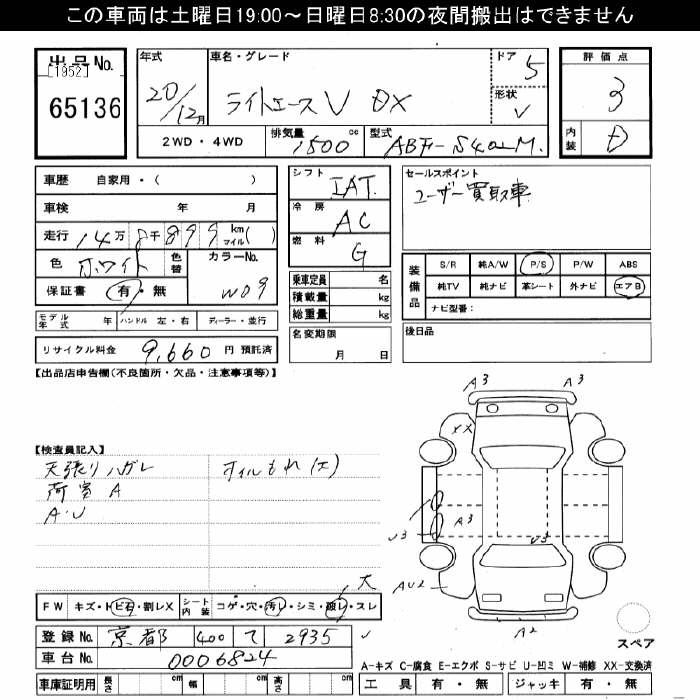 この車両は土曜日19:00～日曜日8:30の夜間搬出はできません
出品No.
[1952]
65136
年式
20/12月
車名・グレード
ライトエースV DX
ドア
5
形状
V
2WD・4WD
排気量
1500 cc
型式
ABF-S402M.
評価点
3
内装
D
車歴 自家用・( )
車検 年 月
走行 14万 8千 899 km マイル( )
色 ホワイト 色替
カラーNo.
W09
保証書 有・無
モデル年式 年 ハンドル 左・右 ディーラー・並行
リサイクル料金 9,660 円 預託済
シフト
IAT.
冷房
AC
燃料
G
乗車定員 名
積載量 kg
総重量 kg
名変期限
月 日
セールスポイント
ユーザー買取車
装備品
S/R 純A/W P/S P/W ABS
純TV 純ナビ 革シート 外ナビ エアB
ナビ型番：
後日品
【出品店申告欄(不良箇所・欠品・注意事項等)】
【検査員記入】
天張りハガレ オイルもれ(エ)
荷室 A
A・U
大
FW キズ・トビ石・割レX シート内装 コゲ・穴・汚レ・シミ・破レ・スレ
登録No. 京都 400 て 2935
車台No. 0006824
車庫証明用 長さ cm 幅 cm 高さ cm
A3 A3
XX
A3
U3 U3
AU2
A2
スペア
A-キズ C-腐食 E-エクボ S-サビ U-凹ミ W-補修 XX-交換済
工具 有・無 ジャッキ 有・無